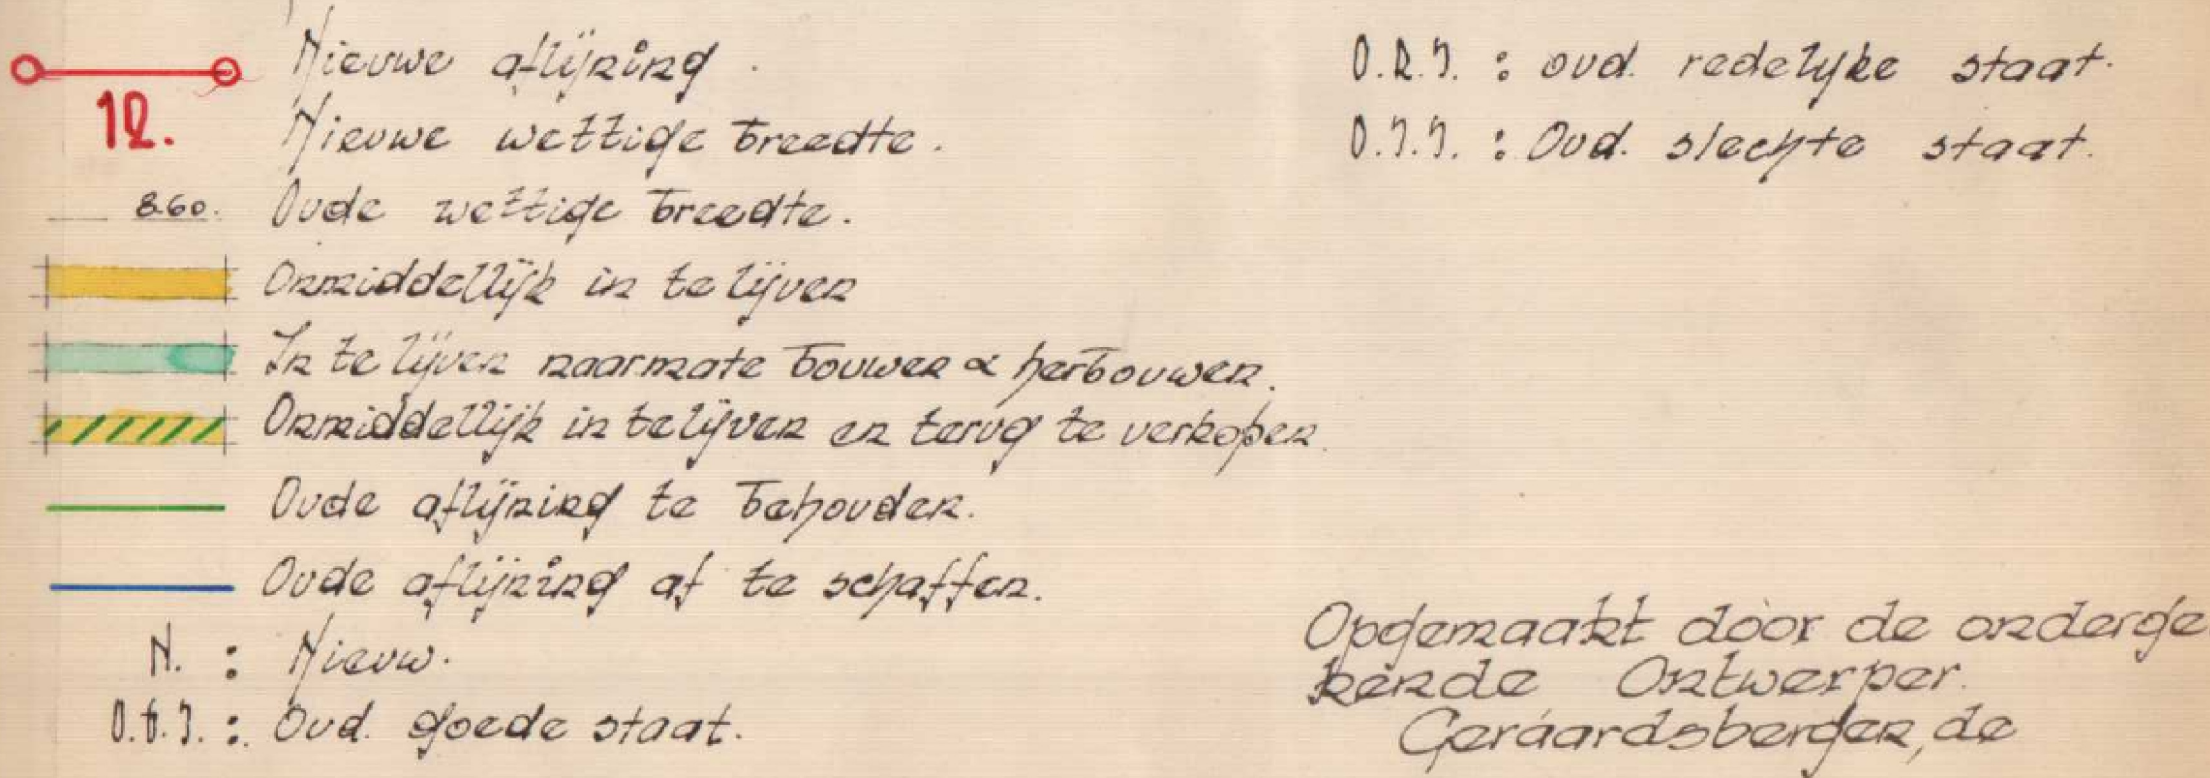 Nieuwe aflijning.
12. Nieuwe wettige breedte.
8.60. Oude wettige breedte.
Onmiddellijk in te lijven
In te lijven naarmate bouwen & herbouwen.
Onmiddellijk in te lijven en terug te verkopen.
Oude aflijning te behouden.
Oude aflijning af te schaffen.
N. : Nieuw.
O.G.S. : Oud. goede staat.
O.R.S. : oud. redelyke staat.
O.S.S. : Oud. slechte staat.
Opgemaakt door de onderge
kende Ontwerper.
Geraardsbergen, de